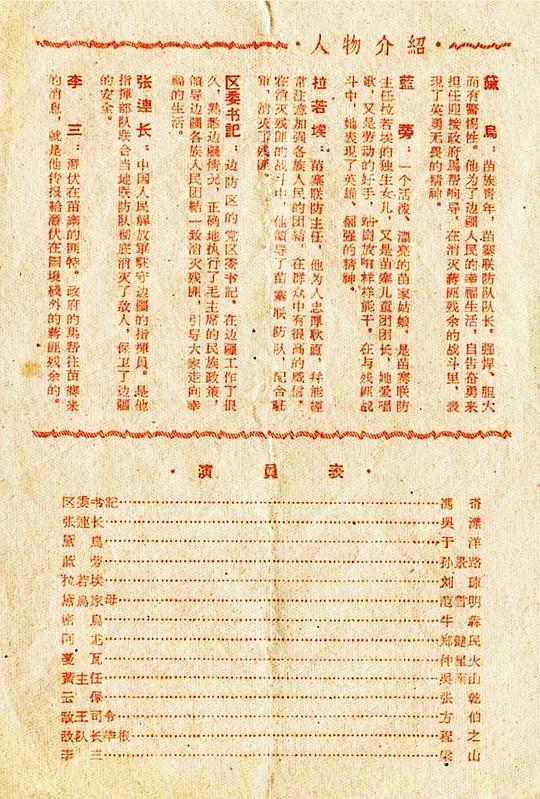 ·人物介紹·
黛 烏：苗族青年，苗寨联防队队长。强悍、胆大
而有警惕性。他为了边疆人民的幸福生活，自告奋勇来
担任迎接政府馬帮响导，在消灭蔣匪残余的战斗里，表
現了英勇无畏的精神。
藍 蒡：一个活泼、漂亮的苗家姑娘，是苗寨联防
主任拉若埃的独生女儿，又是苗寨儿童团团长，她爱唱
歌，又是劳动的好手，站崗放哨样样能干。在与残匪战
斗中，她表現了英雄、倔强的精神。
拉若埃：苗寨联防主任，他为人忠厚耿直，并能經
常注意加强各族人民的团結，在群众中有很高的威信。
在消灭残匪的战斗中，他領导了苗寨联防队，配合駐
軍，消灭了残匪。
区委书記：边防区的党区委书記。在边疆工作了很
久，熟悉边疆情况，正确地执行了毛主席的民族政策，
領导边疆各族人民团結一致消灭残匪，引导大家走向幸
福的生活。
张連长：中国人民解放軍駐守边疆的指揮員。是他
指揮部队联合当地联防队彻底消灭了敌人，保卫了边疆
的安全。
李 三：潛伏在苗寨的匪特。政府的馬帮往苗寨来
的消息，就是他传报給潛伏在国境綫外的蔣匪残余的。
·演員表·
区委书記 馮奇
张連长 吳
黛烏 于洋
蓝 孙景路
拉若埃 刘琼
黛烏家母 范雪明
密烏 牛犇
阿 郑健民
瓦 仲星火
黃主任 吳南山
云保 张乾
敌王司令 方伯
敌队长 程之
李三 梁山